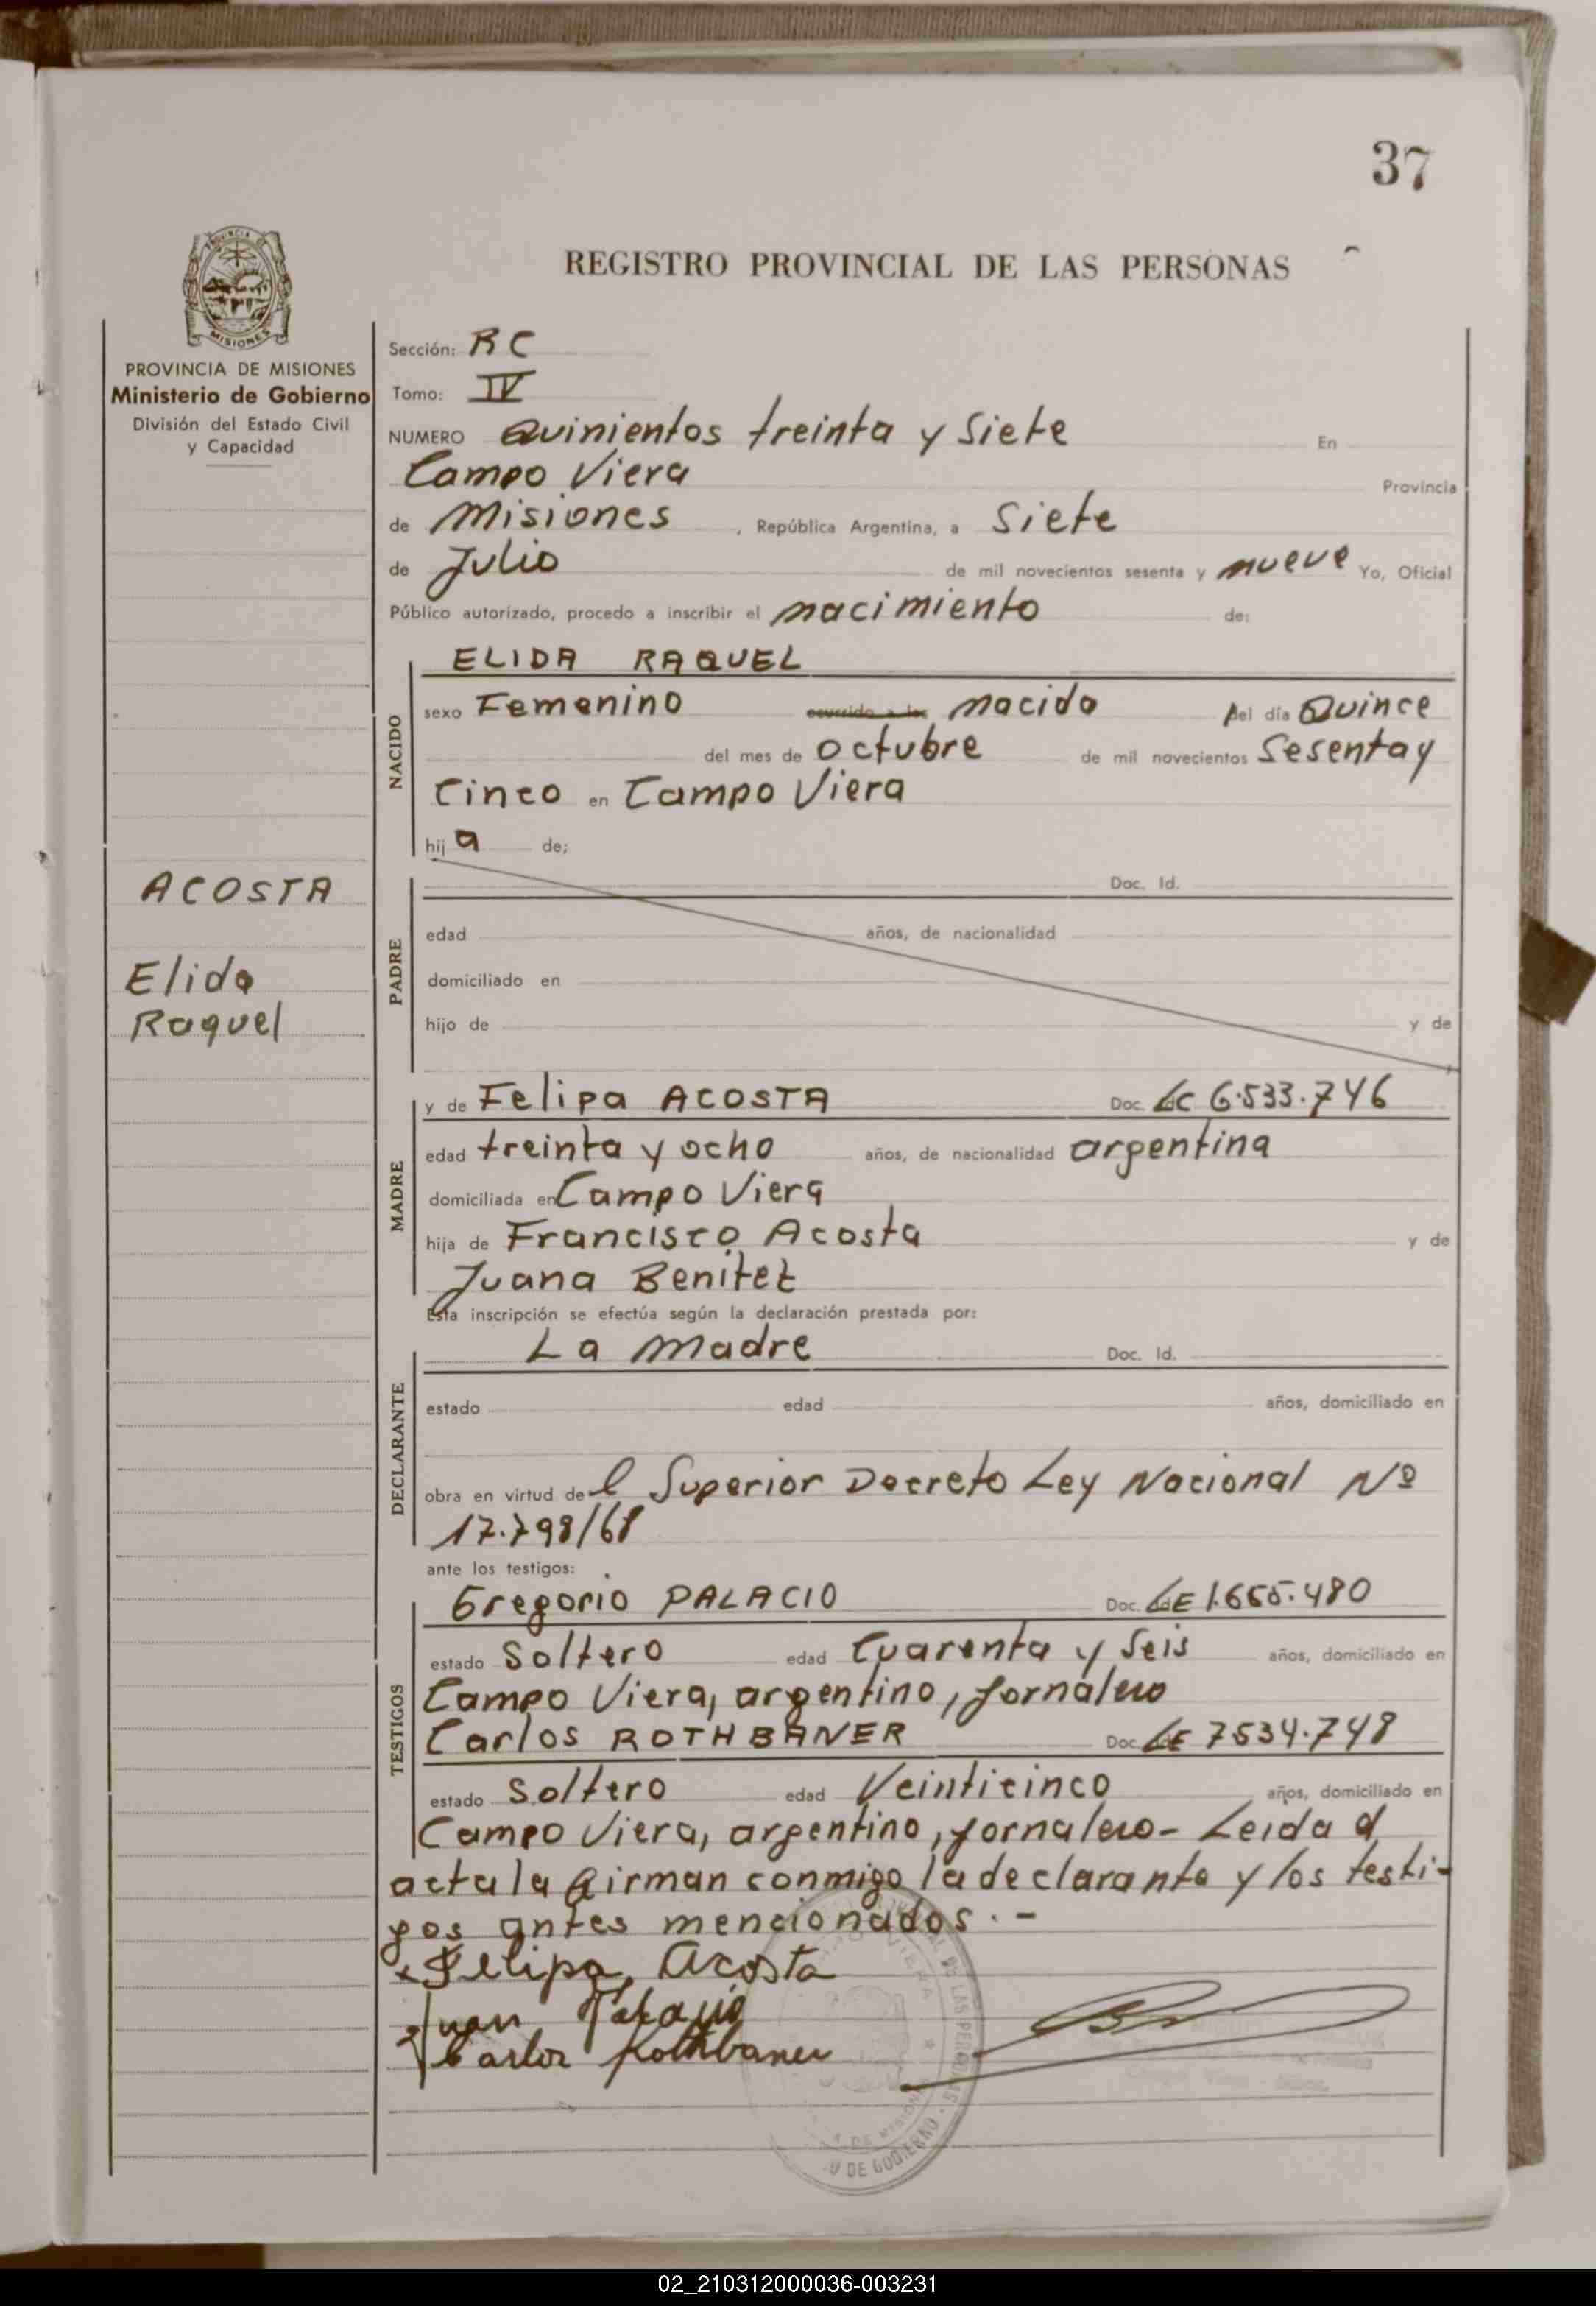 37
REGISTRO PROVINCIAL DE LAS PERSONAS
PROVINCIA DE
MISIONES
PROVINCIA DE MISIONES
Ministerio de Gobierno
División del Estado Civil
y Capacidad
ACOSTA
Elida
Raquel
Sección: RC
Tomo: IV
NUMERO Quinientos treinta y Siete En
Campo Viera Provincia
de Misiones, República Argentina, a Siete
de Julio de mil novecientos sesenta y nueve Yo, Oficial
Público autorizado, procedo a inscribir el nacimiento de:
NACIDO
ELIDA RAQUEL
sexo Femenino ocurrido a las nacida del día Quince
del mes de Octubre de mil novecientos Sesenta y
Cinco en Campo Viera
hija de;
PADRE
Doc. Id.
edad años, de nacionalidad
domiciliado en
hijo de y de
MADRE
y de Felipa ACOSTA Doc. LC 6.533.746
edad treinta y ocho años, de nacionalidad argentina
domiciliada en Campo Viera
hija de Francisco Acosta y de
Juana Benitez
Esta inscripción se efectúa según la declaración prestada por:
DECLARANTE
La Madre Doc. Id.
estado edad años, domiciliado en
obra en virtud del Superior Decreto Ley Nacional Nº
17.798/68
ante los testigos:
TESTIGOS
Gregorio PALACIO Doc. LE 1.655.480
estado Soltero edad Cuarenta y Seis años, domiciliado en
Campo Viera, argentino, jornalero
Carlos ROTHBANER Doc. LE 7534.748
estado Soltero edad Veinticinco años, domiciliado en
Campo Viera, argentino, jornalero - Leida el
acta la firman conmigo la declarante y los testi-
gos antes mencionados. -
x Felipa Acosta
Juan
Carlos Rothbaner
DE LAS PERSONAS
DE GOBIERNO
02_210312000036-003231